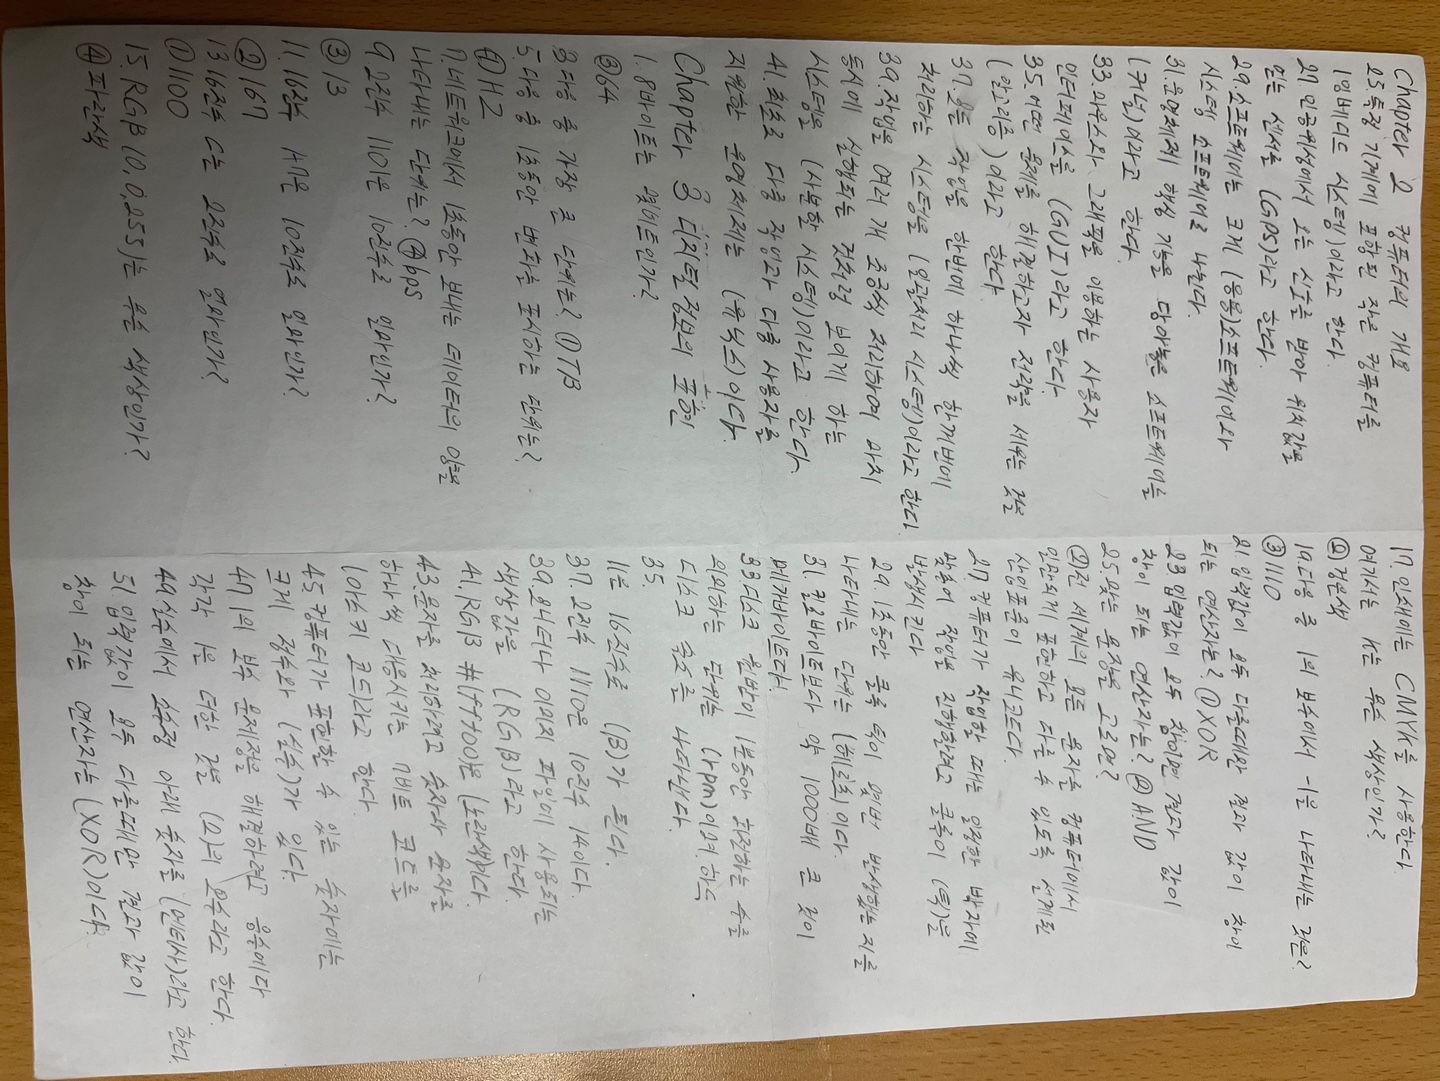 Chapter 2 컴퓨터의 개요
25.특정 기계에 포함된 작은 컴퓨터를
(임베디드 시스템)이라고 한다.
27.인공위성에서 오는 신호를 받아 위치값을
얻는 센서를 (GPS)라고 한다.
29.소프트웨어는 크게 (응용)소프트웨어와
시스템 소프트웨어로 나뉜다.
31.운영체제 핵심 기능을 담아놓은 소프트웨어를
(커널)이라고 한다.
33.마우스와 그래픽을 이용하는 사용자
인터페이스를 (GUI)라고 한다.
35.어떤 문제를 해결하고자 전략을 세우는 것을
(알고리즘)이라고 한다
37.모든 작업을 한번에 하나씩 한꺼번에
처리하는 시스템을 (일괄처리 시스템)이라고 한다.
39.작업을 여러 개 조금씩 처리하여 마치
동시에 실행되는 것처럼 보이게 하는
시스템을 (시분할 시스템)이라고 한다.
41.최초로 다중 작업과 다중 사용자를
지원한 운영체제는 (유닉스)이다.
Chapter 3 디지털 정보의 표현
1.8바이트는 몇비트인가?
③64
3 다음 중 가장 큰 단위는? ①TB
5 다음 중 1초동안 변화를 표시하는 단위는?
①HZ
7.네트워크에서 1초동안 보내는 데이터의 양을
나타내는 단위는? ④bps
9 2진수 1101은 10진수로 얼마인가?
③13
11.16진수 A7은 10진수로 얼마인가?
②167
13 16진수 C는 2진수로 얼마인가?
①1100
15.RGB(0,0,255)는 무슨 색상인가?
④파란색
17.인쇄에는 CMYK를 사용한다.
여기서는 K는 무슨 색상인가?
②검은색
19.다음 중 1의 보수에서 -1을 나타내는 것은?
③1110
21.입력값이 모두 다를때만 결과 값이 참이
되는 연산자는? ①XOR
23.입력값이 모두 참이면 결과 값이
참이 되는 연산자는? ②AND
25.맞는 문장을 고르면?
②전 세계의 모든 문자를 컴퓨터에서
일관되게 표현하고 다룰 수 있도록 설계된
산업표준이 유니코드다.
27.컴퓨터가 작업할 때는 일정한 박자에
맞춰 작업을 진행할려고 클록이 (틱)을
발생시킨다
29.1초동안 클록 틱이 몇번 발생했는지를
나타내는 단위는 (헤르츠)이다.
31.킬로바이트보다 약 1000배 큰 것이
메가바이트다!
33디스크 원반이 1분동안 회전하는 수를
의미하는 단위는 (rpm)이며.하드
디스크 속도를 나타낸다.
35.
11은 16진수로 (B)가 된다.
37.2진수 1110은 10진수 14이다.
39.모니터나 이미지 파일에 사용되는
색상값을 (RGB)라고 한다.
41.RGB #(ffff00)은 (노란색)이다.
43.문자를 처리하려고 숫자와 문자를
하나씩 대응시키는 7비트 코드를
(아스키 코드)라고 한다.
45.컴퓨터가 표현할 수 있는 숫자에는
크게 정수와 (실수)가 있다.
47 1의 보수 문제점을 해결하려고 음수에다
각각 1을 더한 것을 (2)의 보수라고 한다.
49.실수에서 소수점 아래 숫자를 (멘티사)라고 한다.
51.입력값이 모두 다를때만 결과 값이
참이 되는 연산자는 (XOR)이다.